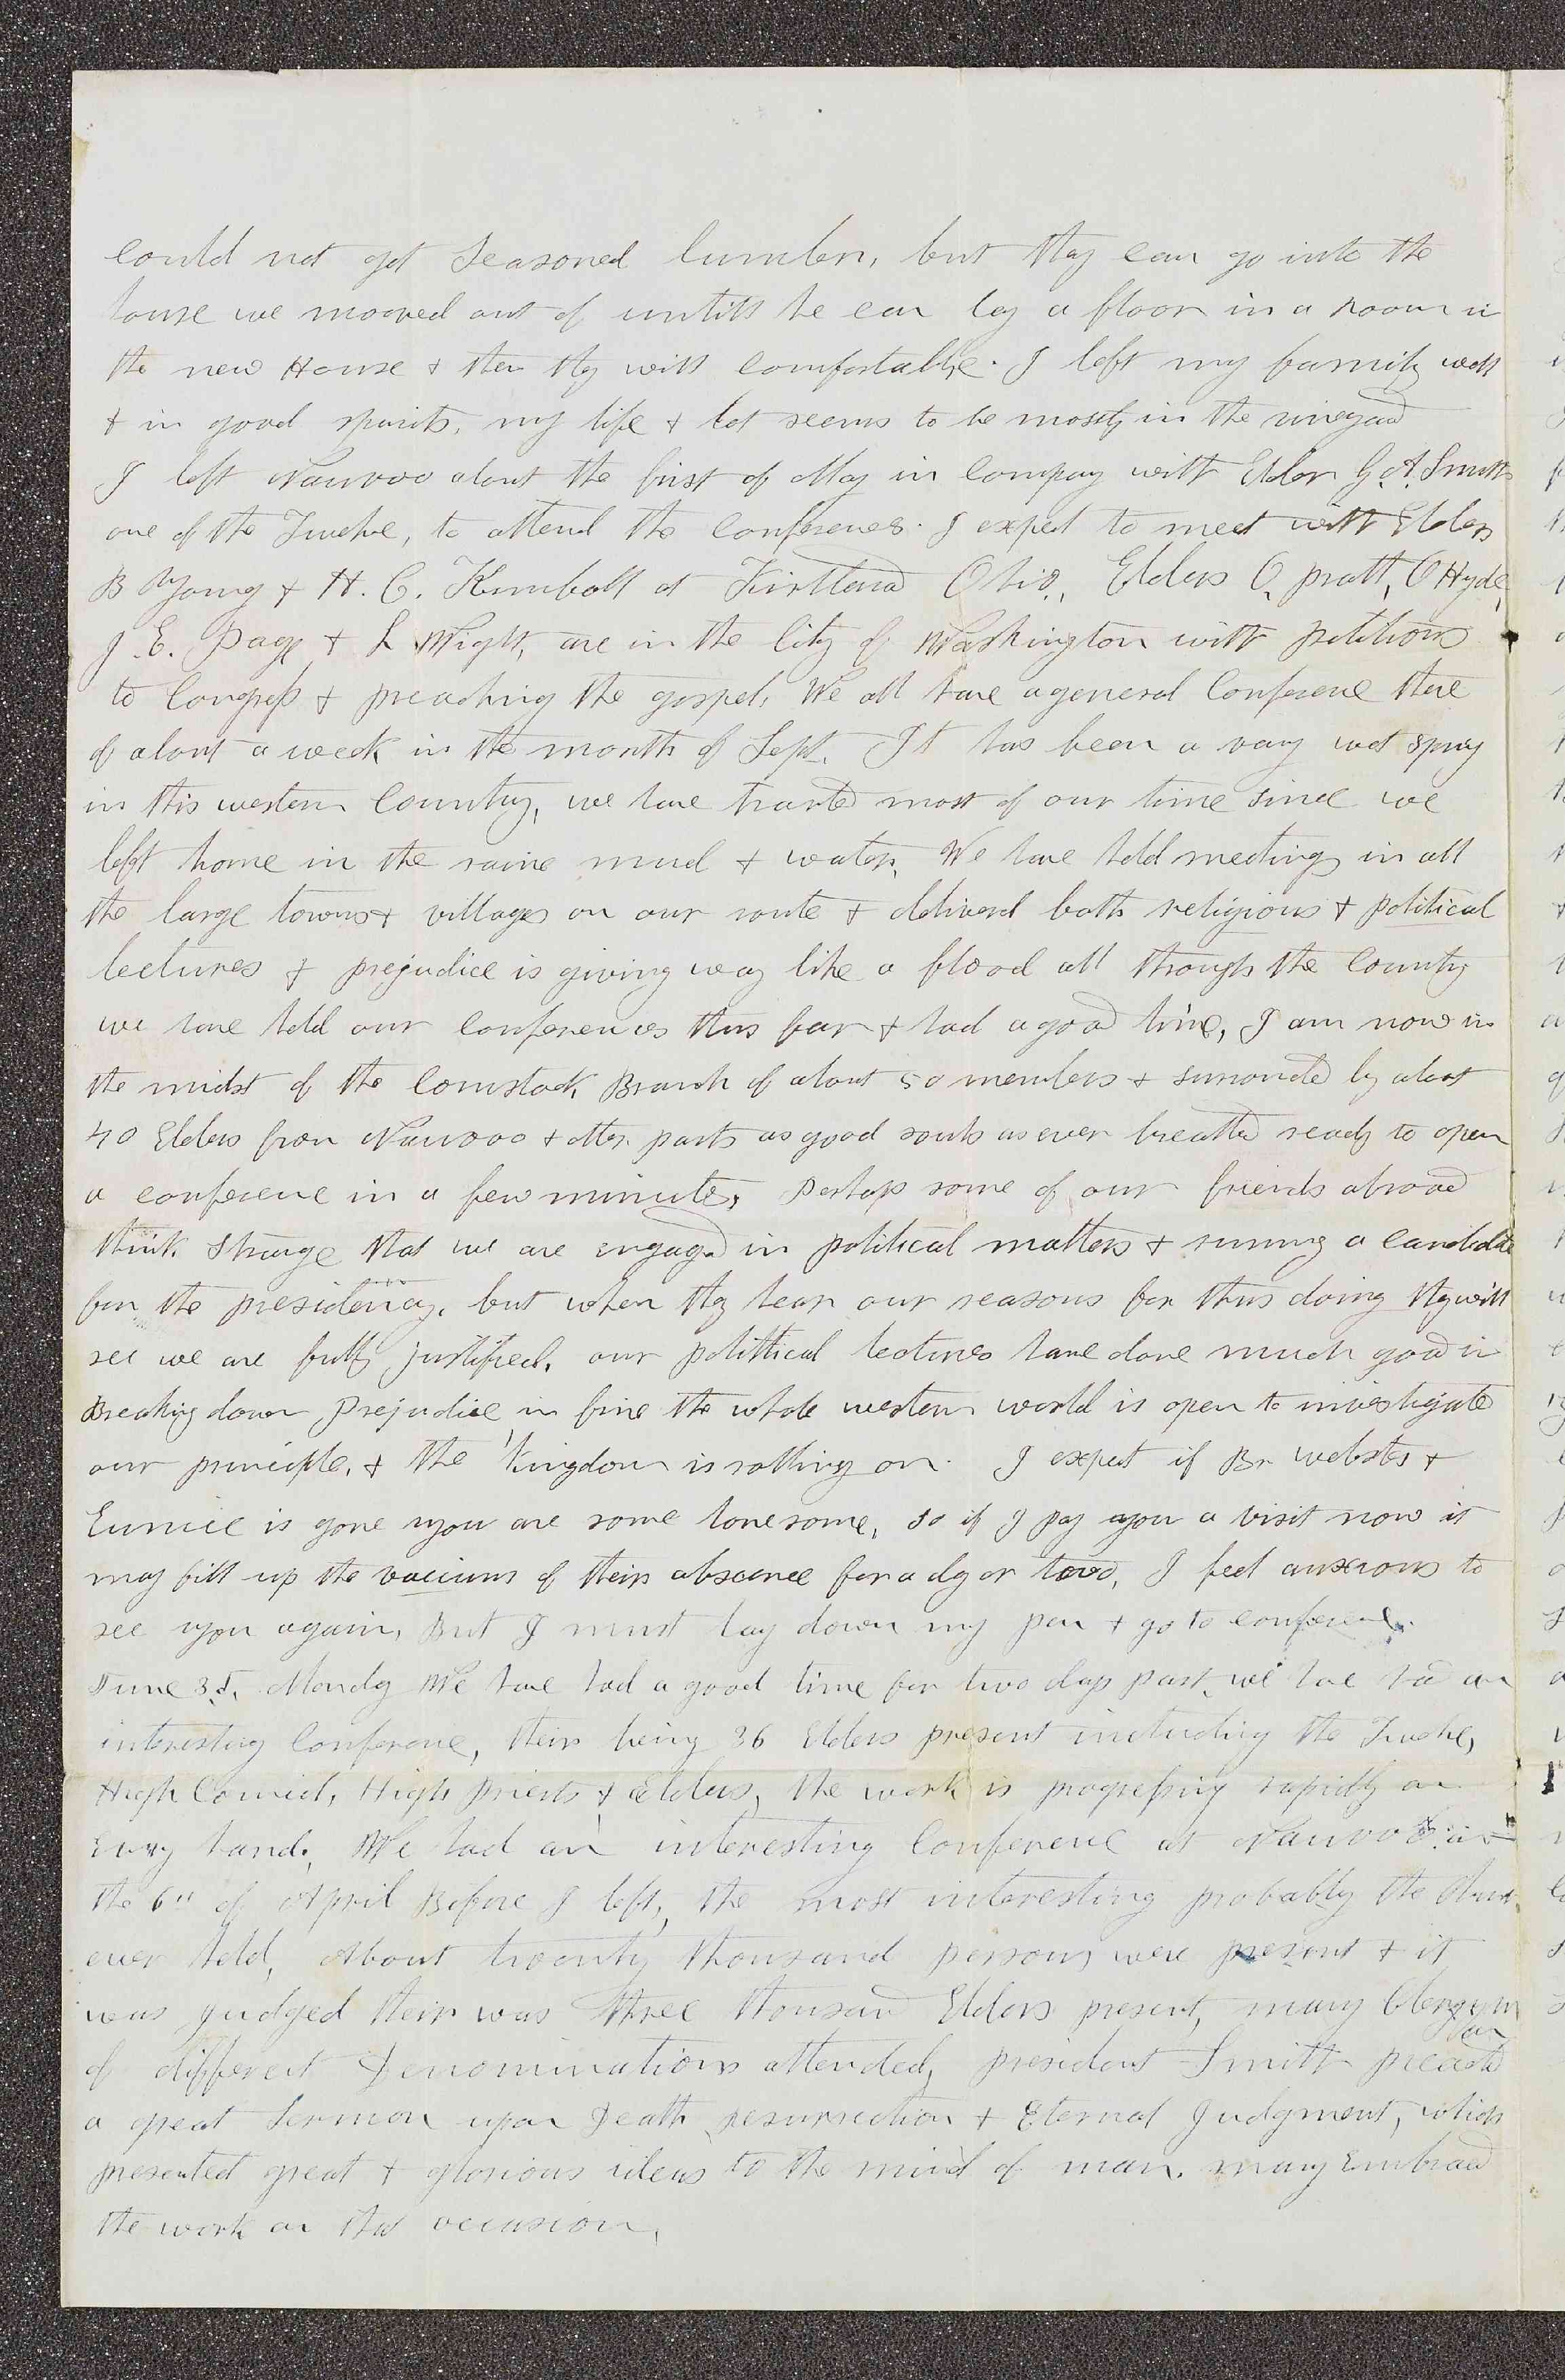 could not get Seasoned lumber, but they can go into the
house we mooved out of untill he can lay a floor in a room in
the new House & then they will comfortable. I left my family well
& in good spirits, my life & lot seems to be mostly in the vineyard
I left Nauvoo about the first of May in company with Elder G. A. Smith
one of the Twelve, to attend the conferences. I expect to meet with Elders
B Young & H. C. Kimball at Kirtland Ohio., Elders O, pratt, O Hyde,
J. E. Page & L Wight, are in the City of Washington with petitions
to Congress & preaching the gospel. We all have a general Conference there
of about a week in the month of Sept. It has been a vary wet spring
in this western Country, we have travled most of our time since we
left home in the raine mud & water. We have held meetings in all
the large towns & villages on our route & deliverd both religious & political
lectures & prejudice is giving way like a flood all through the County
we have held our conferences thus far & had a good time, I am now in
the midst of the Comstock Branch of about 50 members & surrounded by about
40 Elders from Nauvoo & other parts as good souls as ever breathed ready to open
a conference in a few minutes, Perhaps some of our friends abroad
think strange that we are engaged in political matters & runing a candidate
for the presidency, but when they hear our reasons for thus doing they will
see we are fully justified. our polittical lectures have done much good in
Breaking down Prejudice in fine the whole western world is open to investigate
our principle, & the kingdom is rolling on. I expect if Br webster &
Eunice is gone you are some lonesome, so if I pay you a visit now it
may fill up the vaccium of their abscence for a day or two, I feel anxious to
see you again, But I must lay down my pen & go to conference.
June 3d, Monday We have had a good time for two days past, we have had an
interesting Conference, their being 36 Elders present including the Twelve,
High Council, High Priests & Elders, the work is progressing rapidly on
Evry hand. We had an interesting Conference at Nauvoo on
the 6" of April Before I left, the most interesting probably the Church
ever held, About twenty thousand persons were present & it
was judged their was three thousand Elders present, many Clergyman
of different Denominations attended, president Smith preachd
a great Sermon upon Death resurrection & Eternal Judgment, which
presented great & glorious ideas to the mind of man. many Embraced
the work on that occasion,